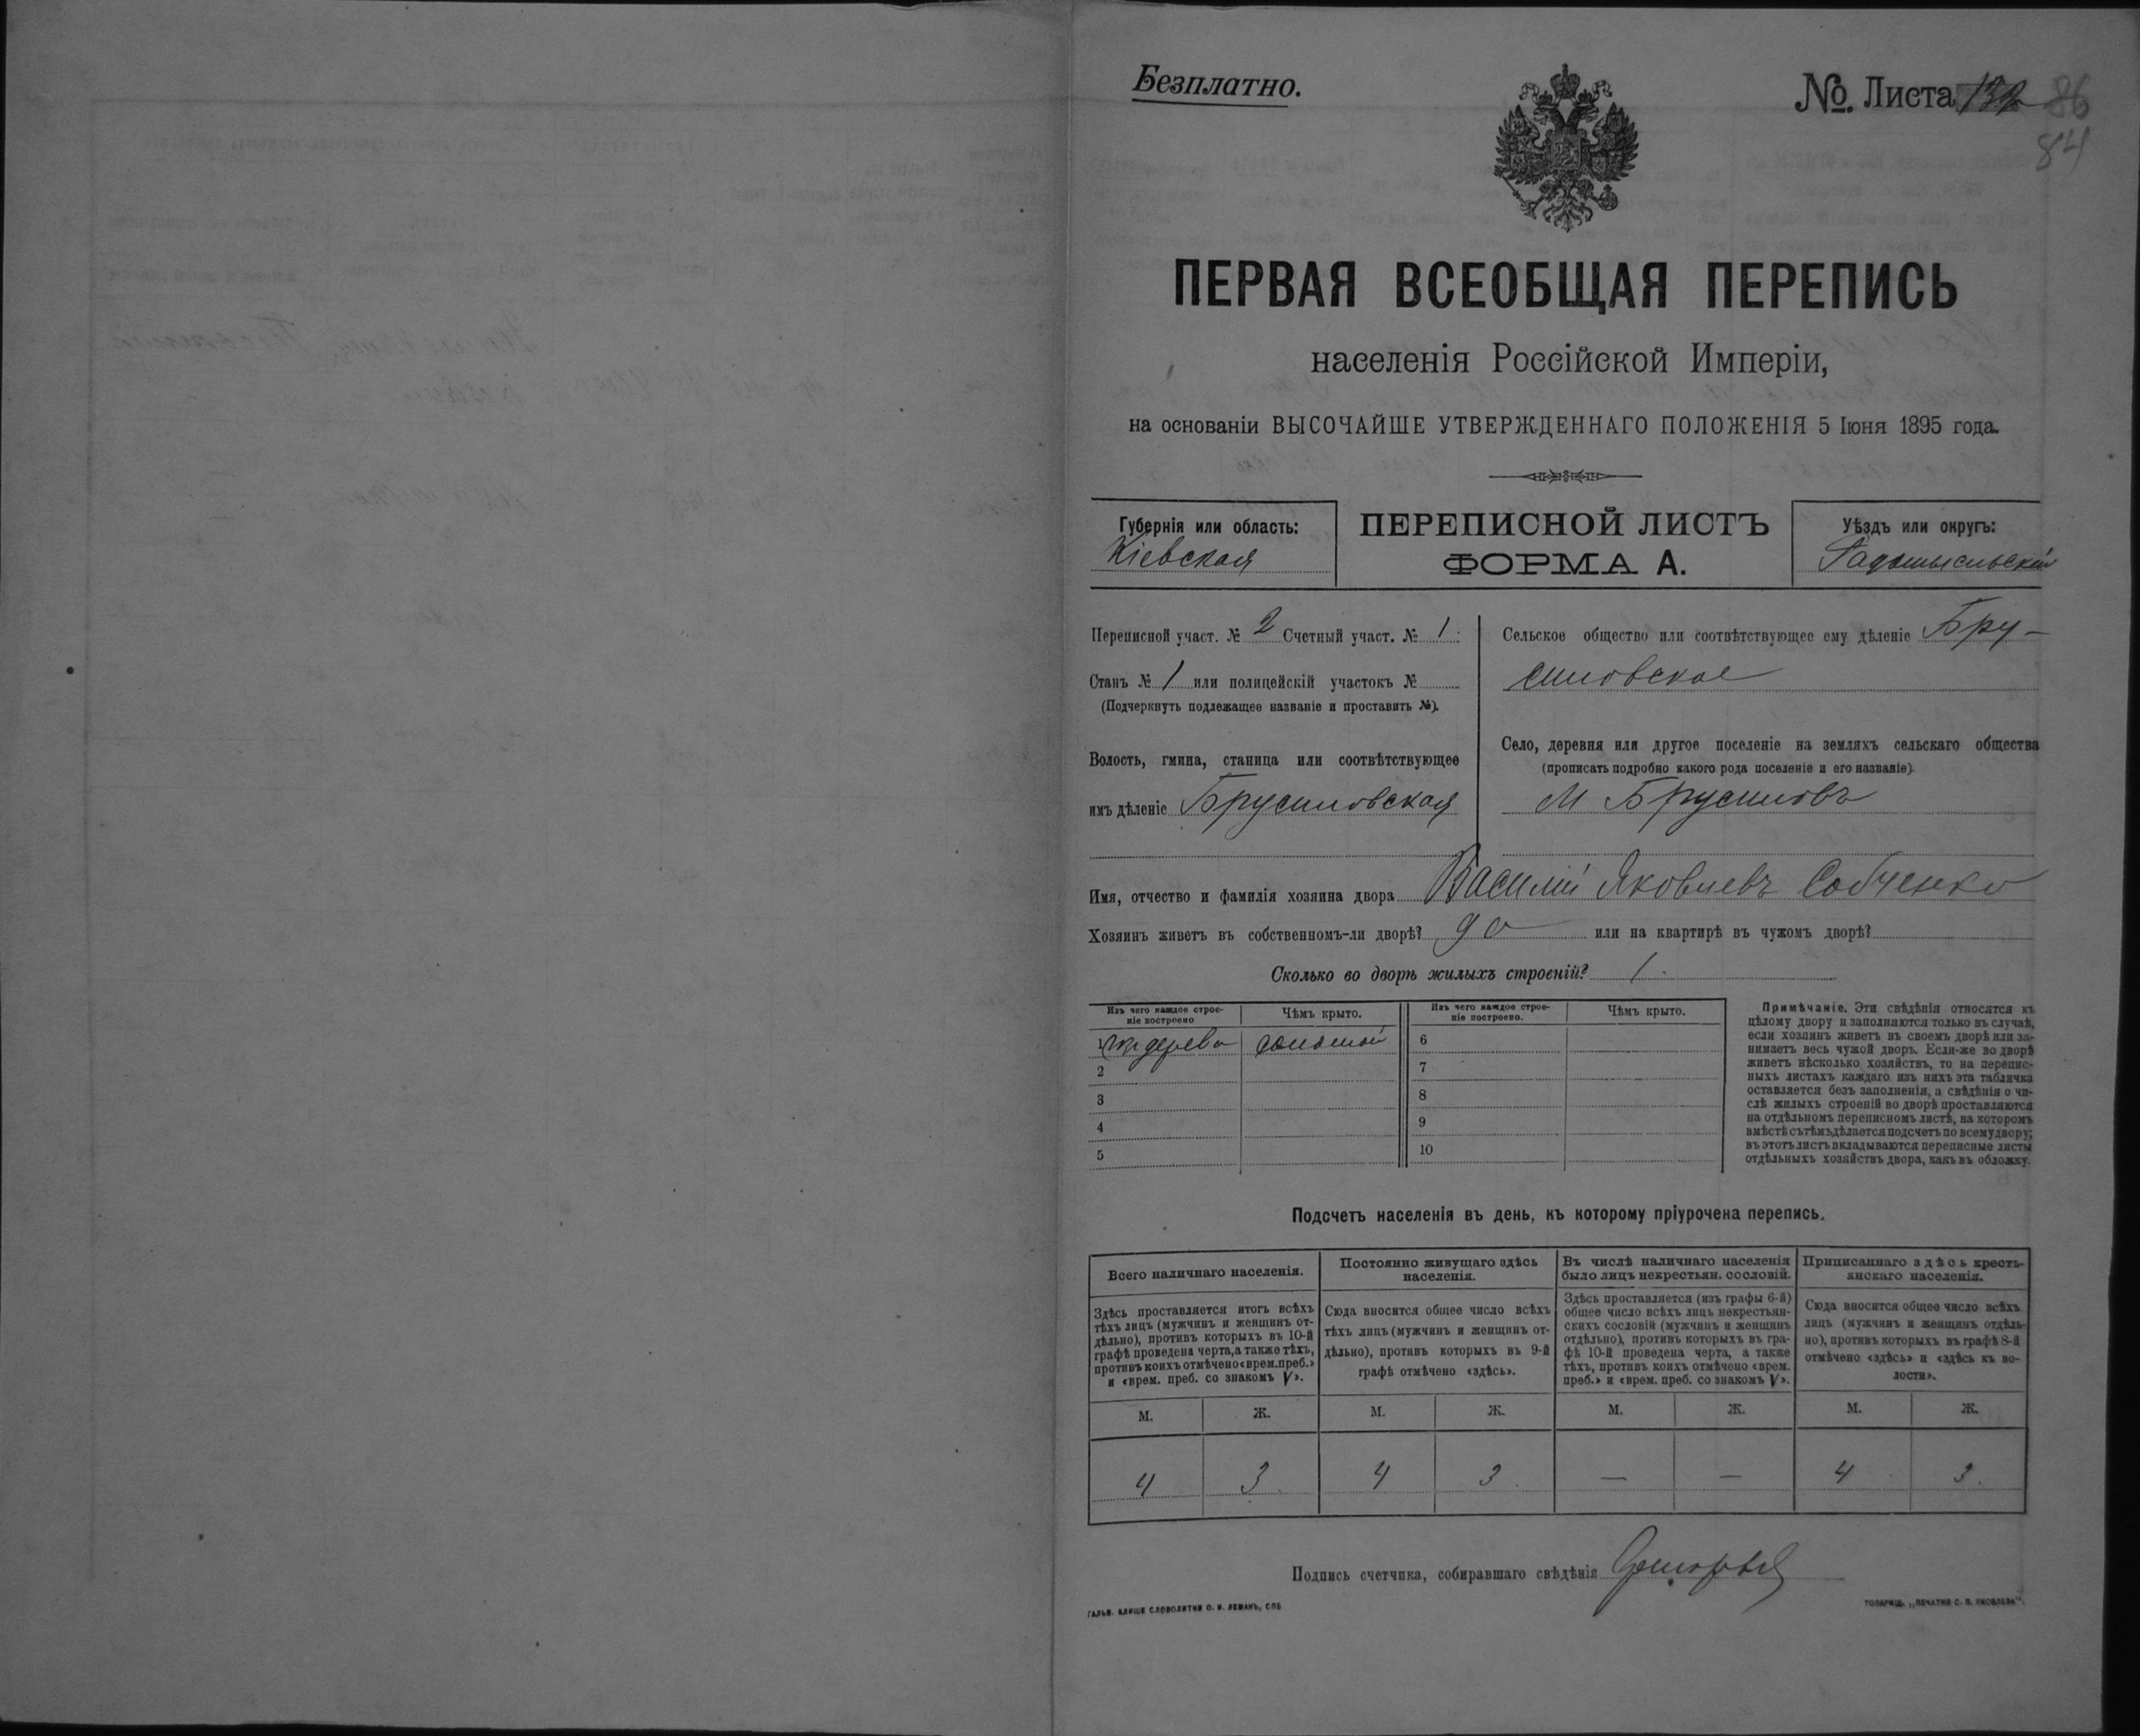 Безплатно.
№. Листа 132 86
84
ПЕРВАЯ ВСЕОБЩАЯ ПЕРЕПИСЬ
населенія Россійской Имперіи,
на основаніи ВЫСОЧАЙШЕ УТВЕРЖДЕННАГО ПОЛОЖЕНІЯ 5 Іюня 1895 года.
Губернія или область:
Кіевская
ПЕРЕПИСНОЙ ЛИСТЪ
ФОРМА А.
Уѣздъ или округъ:
Радомысльскій
Переписной участ. № 2 Счетный участ. № 1
Станъ № 1 или полицейскій участокъ №
(Подчеркнуть подлежащее названіе и проставить №).
Волость, гмина, станица или соотвѣтствующее
имъ дѣленіе Брусиловская
Сельское общество или соотвѣтствующее ему дѣленіе Бру-
силовское
Село, деревня или другое поселеніе на земляхъ сельскаго общества
(прописать подробно какого рода поселеніе и его названіе).
М Брусиловъ
Имя, отчество и фамилія хозяина двора Василій Яковлевъ Собченко
Хозяинъ живетъ въ собственномъ-ли дворѣ? да или на квартирѣ въ чужомъ дворѣ?
Сколько во дворѣ жилыхъ строеній? 1.
Изъ чего каждое строе-
ніе построено
Чѣмъ крыто.
Изъ чего каждое строе-
ніе построено.
Чѣмъ крыто.
1 изъ дерева соломой 6
2 7
3 8
4 9
5 10
Примѣчаніе. Эти свѣдѣнія относятся къ
цѣлому двору и заполняются только въ случаѣ,
если хозяинъ живетъ въ своемъ дворѣ или за-
нимаетъ весь чужой дворъ. Если-же во дворѣ
живетъ нѣсколько хозяйствъ, то на перепис-
ныхъ листахъ каждаго изъ нихъ эта табличка
оставляется безъ заполненія, а свѣдѣнія о чи-
слѣ жилыхъ строеній во дворѣ проставляются
на отдѣльномъ переписномъ листѣ, на которомъ
вмѣстѣ съ тѣмъ дѣлается подсчетъ по всему двору;
въ этотъ листъ вкладываются переписные листы
отдѣльныхъ хозяйствъ двора, какъ въ обложку.
Подсчетъ населенія въ день, къ которому пріурочена перепись.
Всего наличнаго населенія.
Здѣсь проставляется итогъ всѣхъ
тѣхъ лицъ (мужчинъ и женщинъ от-
дѣльно), противъ которыхъ въ 10-й
графѣ проведена черта, а также тѣхъ,
противъ коихъ отмѣчено «врем. преб.»
и «врем. преб. со знакомъ V».
Постоянно живущаго здѣсь
населенія.
Сюда вносится общее число всѣхъ
тѣхъ лицъ (мужчинъ и женщинъ от-
дѣльно), противъ которыхъ въ 9-й
графѣ отмѣчено «здѣсь».
Въ числѣ наличнаго населенія
было лицъ некрестьян. сословій.
Здѣсь проставляется (изъ графы 6-й)
общее число всѣхъ лицъ некрестьян-
скихъ сословій (мужчинъ и женщинъ
отдѣльно), противъ которыхъ въ гра-
фѣ 10-й проведена черта, а также
тѣхъ, противъ коихъ отмѣчено «врем.
преб.» и «врем. преб. со знакомъ V».
Приписаннаго здѣсь кресть-
янскаго населенія.
Сюда вносится общее число всѣхъ
лицъ (мужчинъ и женщинъ отдѣль-
но), противъ которыхъ въ графѣ 8-й
отмѣчено «здѣсь» и «здѣсь къ во-
лости».
М. Ж. М. Ж. М. Ж. М. Ж.
4 3 4 3 — — 4 3
Подпись счетчика, собиравшаго свѣдѣнія
ГАЛЬВ. КЛИШЕ СЛОВОЛИТНИ О. И. ЛЕМАНЪ, СПБ
ТОВАРИЩ. „ПЕЧАТНЯ С. П. ЯКОВЛЕВА".